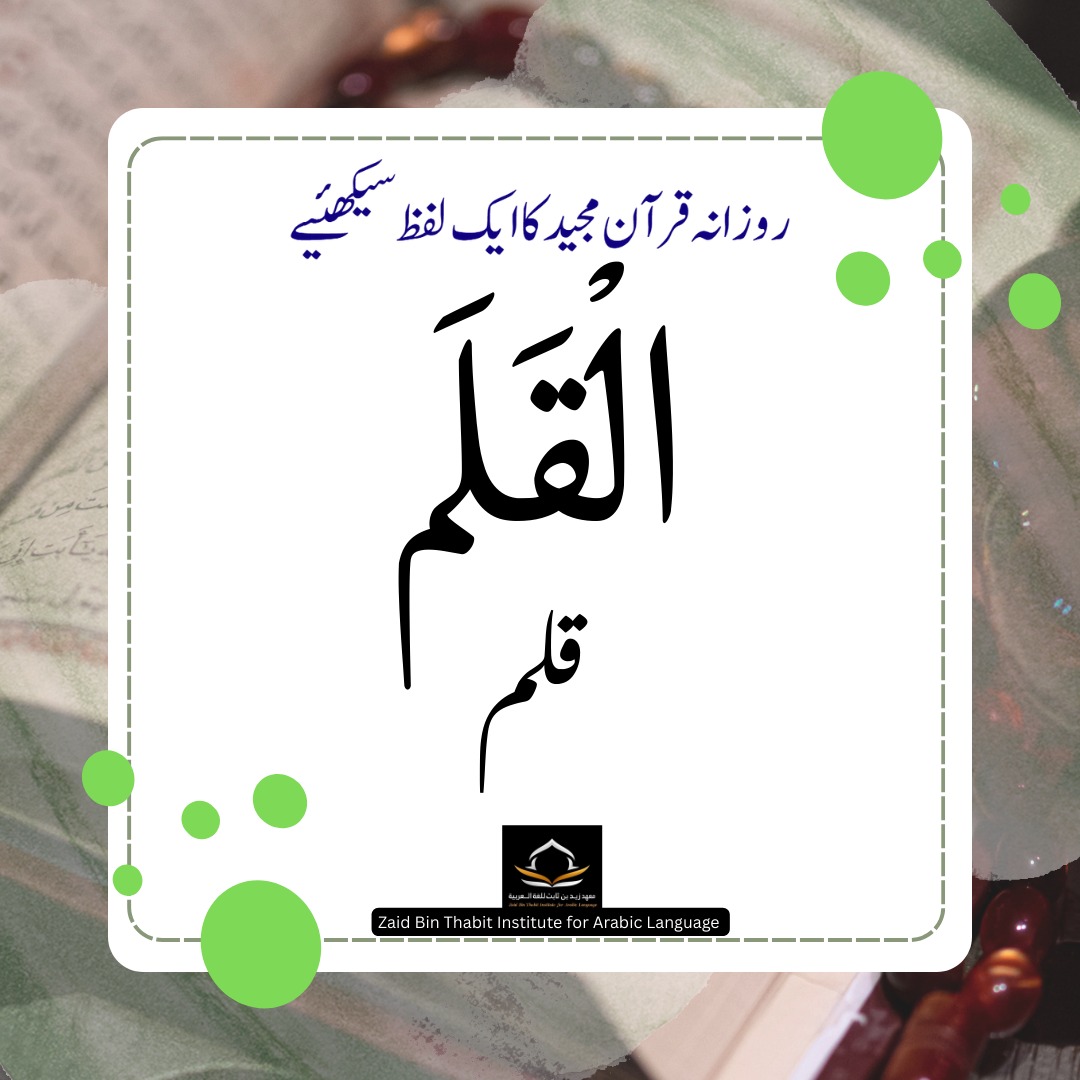 روزانہ قرآن مجید کا ایک لفظ سیکھئیے
الْقَلَم
قلم
معهد زيد بن ثابت للغة العربية
Zaid Bin Thabit Institute for Arabic Language
Zaid Bin Thabit Institute for Arabic Language